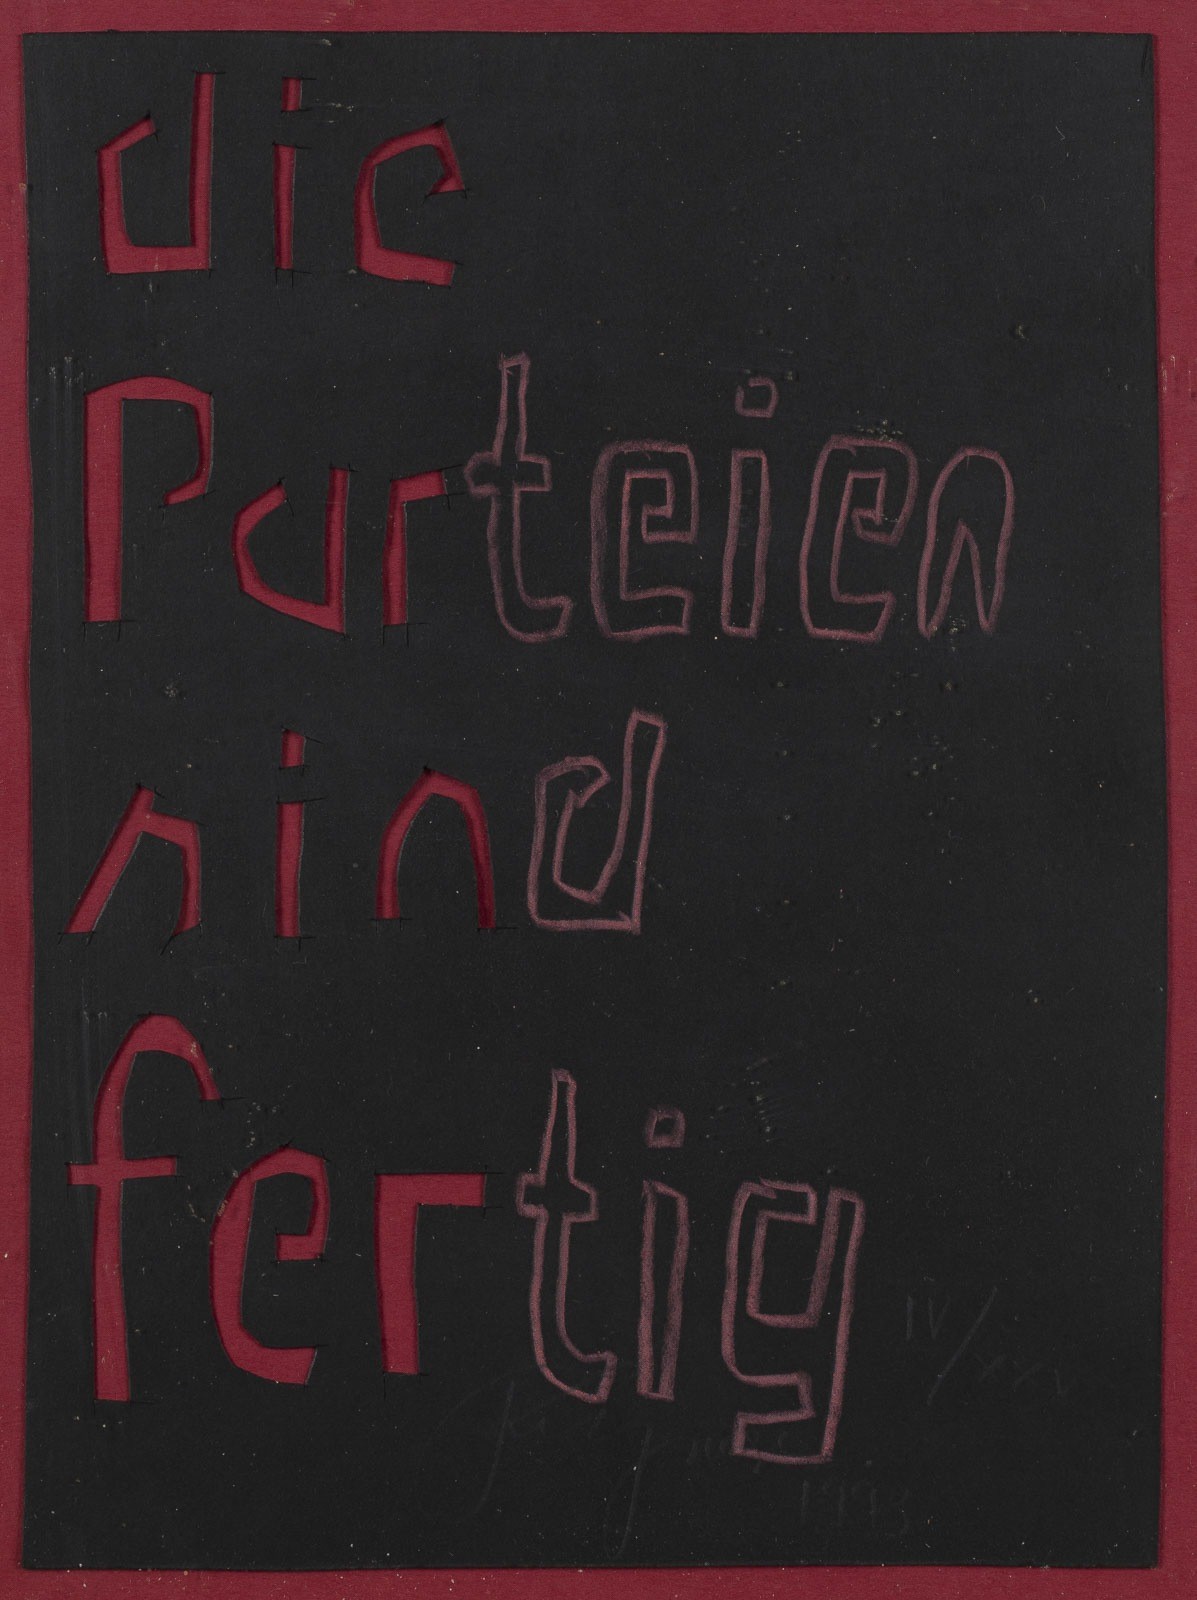 die
Parteien
sind
fertig
IV/xxv
1993